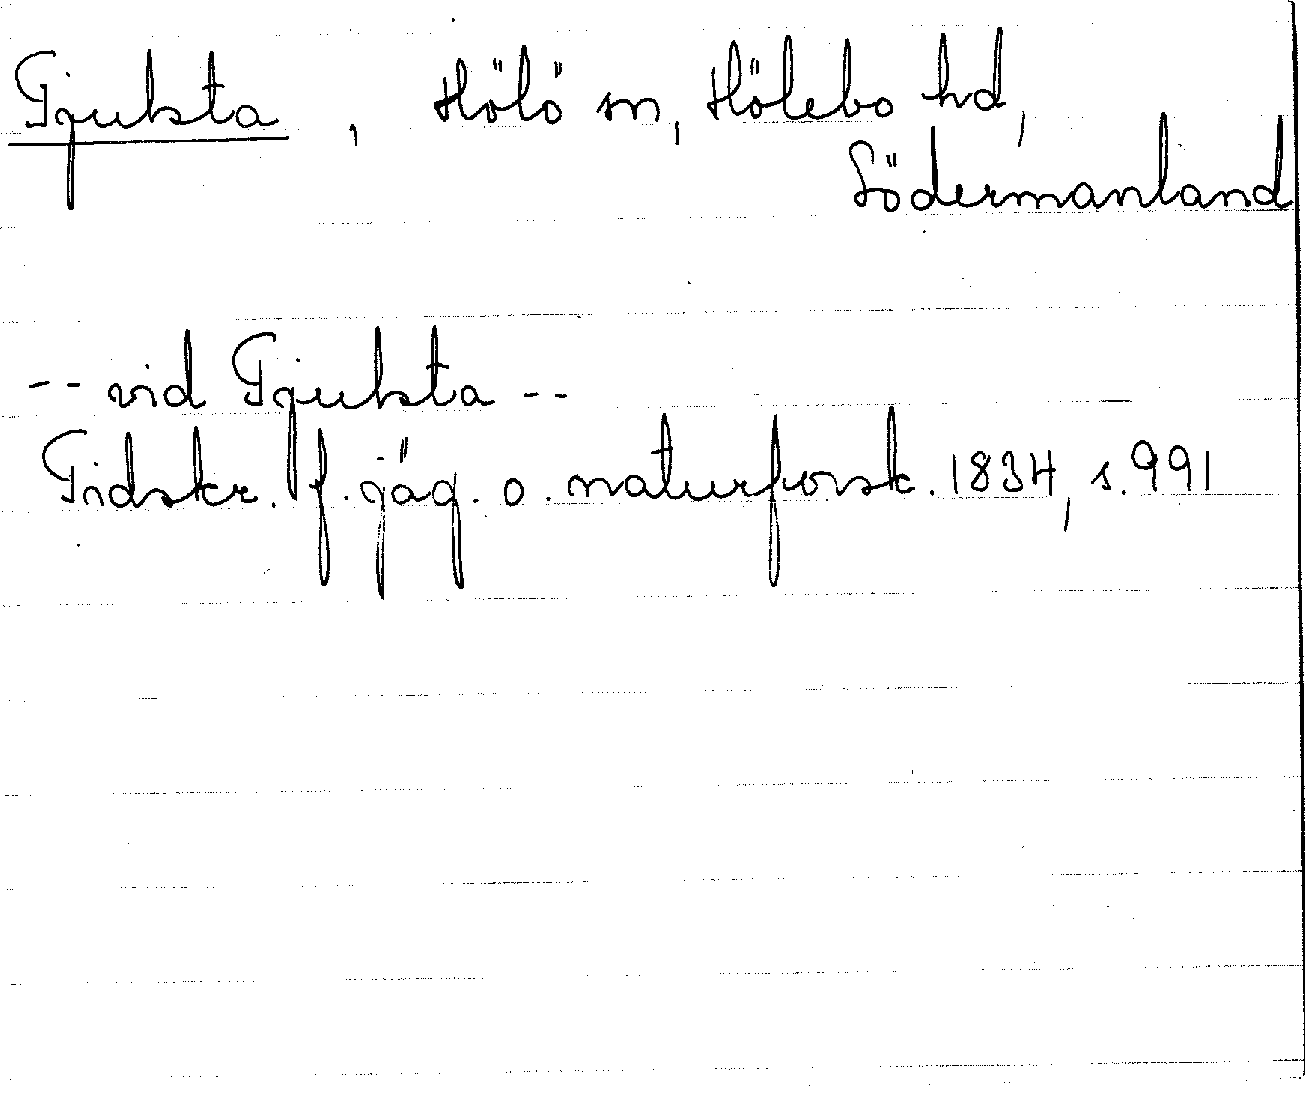 Tjuksta, Hölö sn, Hölebo hd,
Södermanland
-- vid Tjuksta --
Tidskr. f. jäg. o. naturforsk. 1834, s. 991